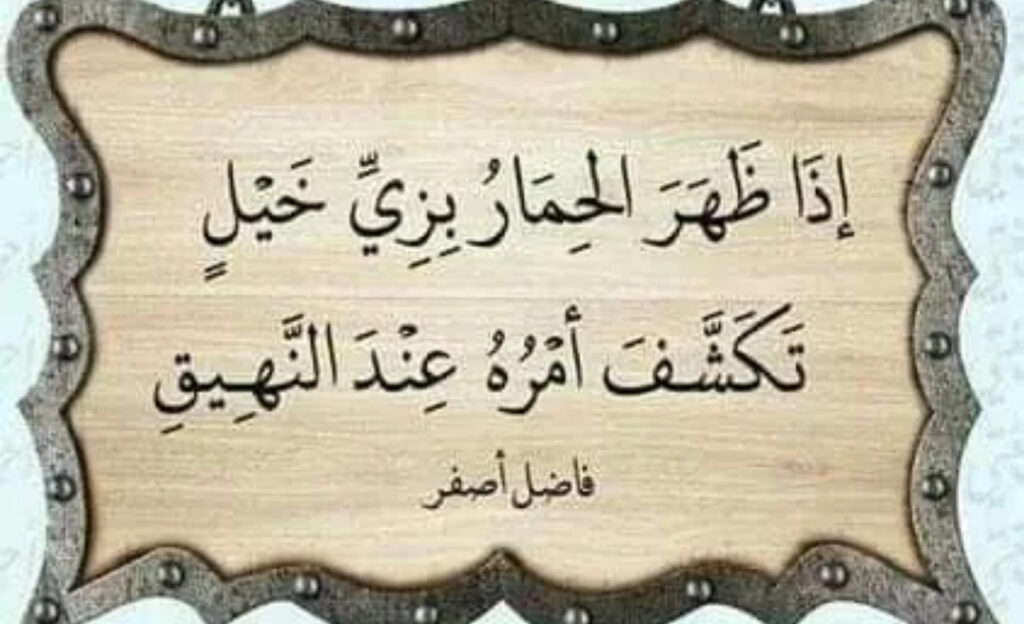 إِذَا ظَهَرَ الحِمَارُ بِزِيِّ خَيْلٍ
تَكَشَّفَ أَمْرُهُ عِنْدَ النَّهِيقِ
فاضل أصفر